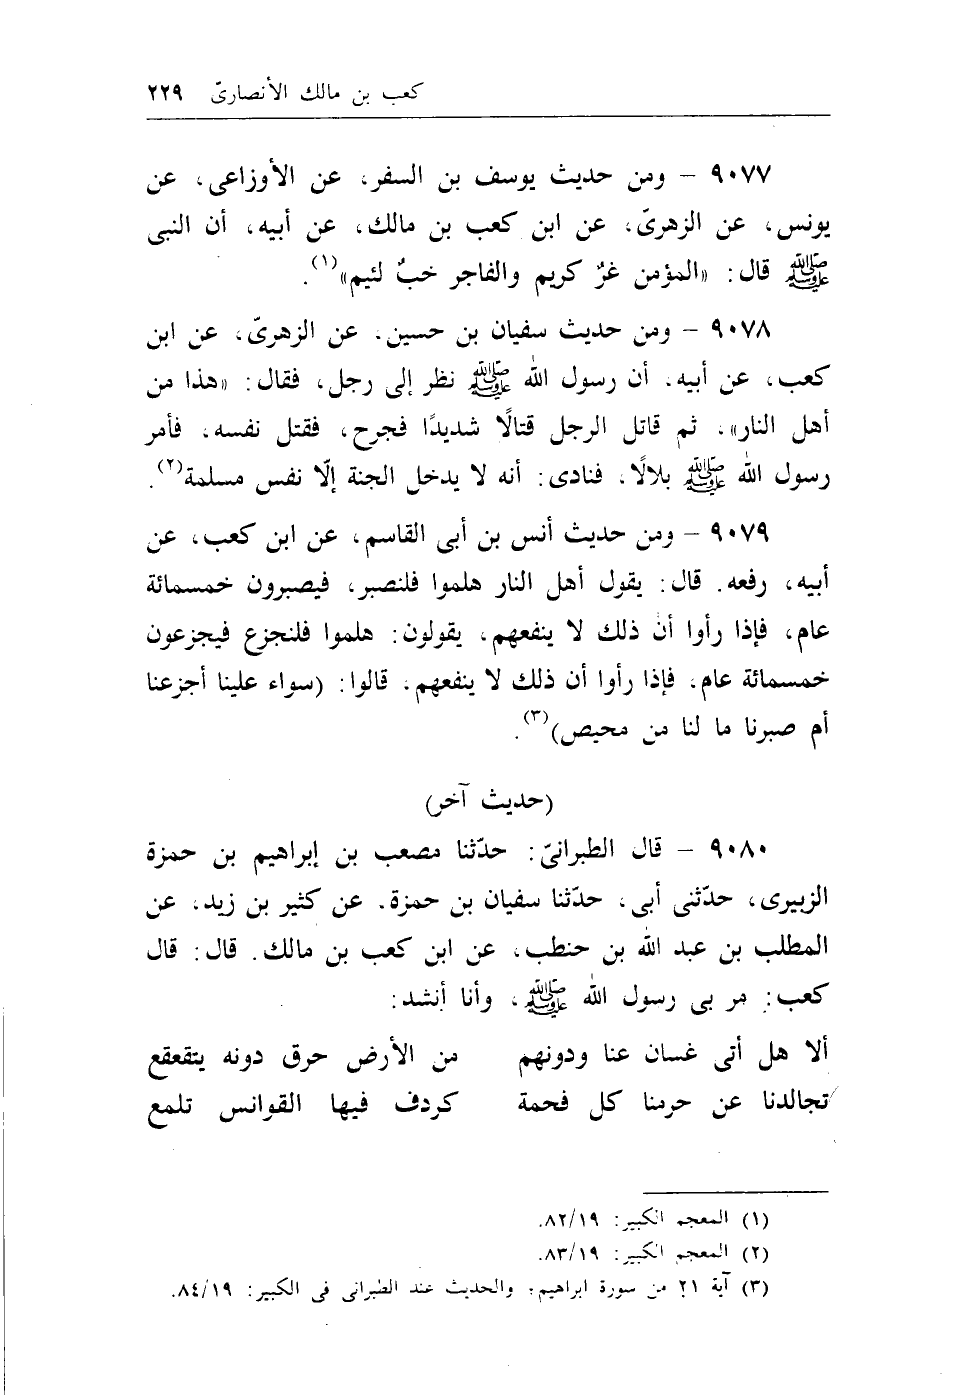 كعب بن مالك الأنصارىّ ٢٢٩
٩٠٧٧ – ومن حديث يوسف بن السفر، عن الأوزاعى، عن
يونس، عن الزهرىّ، عن ابن كعب بن مالك، عن أبيه، أن النبى
ﷺ قال: «المؤمن غرٌ كريم والفاجر خبٌ لئيم»(١).
٩٠٧٨ – ومن حديث سفيان بن حسين، عن الزهرىّ، عن ابن
كعب، عن أبيه، أن رسول الله ﷺ نظر إلى رجل، فقال: «هذا من
أهل النار»، ثم قاتل الرجل قتالًا شديدًا فجرح، فقتل نفسه، فأمر
رسول الله ﷺ بلالًا، فنادى: أنه لا يدخل الجنة إلّا نفس مسلمة(٢).
٩٠٧٩ – ومن حديث أنس بن أبى القاسم، عن ابن كعب، عن
أبيه، رفعه. قال: يقول أهل النار هلموا فلنصبر، فيصبرون خمسمائة
عام، فإذا رأوا أن ذلك لا ينفعهم، يقولون: هلموا فلنجزع فيجزعون
خمسمائة عام، فإذا رأوا أن ذلك لا ينفعهم، قالوا: (سواء علينا أجزعنا
أم صبرنا ما لنا من محيص)(٣).
(حديث آخر)
٩٠٨٠ – قال الطبرانىّ: حدّثنا مصعب بن إبراهيم بن حمزة
الزبيرى، حدّثنى أبى، حدّثنا سفيان بن حمزة، عن كثير بن زيد، عن
المطلب بن عبد الله بن حنطب، عن ابن كعب بن مالك. قال: قال
كعب: مر بى رسول الله ﷺ، وأنا أنشد:
ألا هل أتى غسان عنا ودونهم من الأرض حرق دونه يتقعقع
تجالدنا عن حرمنا كل فحمة كردف فيها القوانس تلمع
(١) المعجم الكبير: ٨٢/١٩.
(٢) المعجم الكبير: ٨٣/١٩.
(٣) آية ٢١ من سورة ابراهيم؛ والحديث عند الطبرانى فى الكبير: ٨٤/١٩.